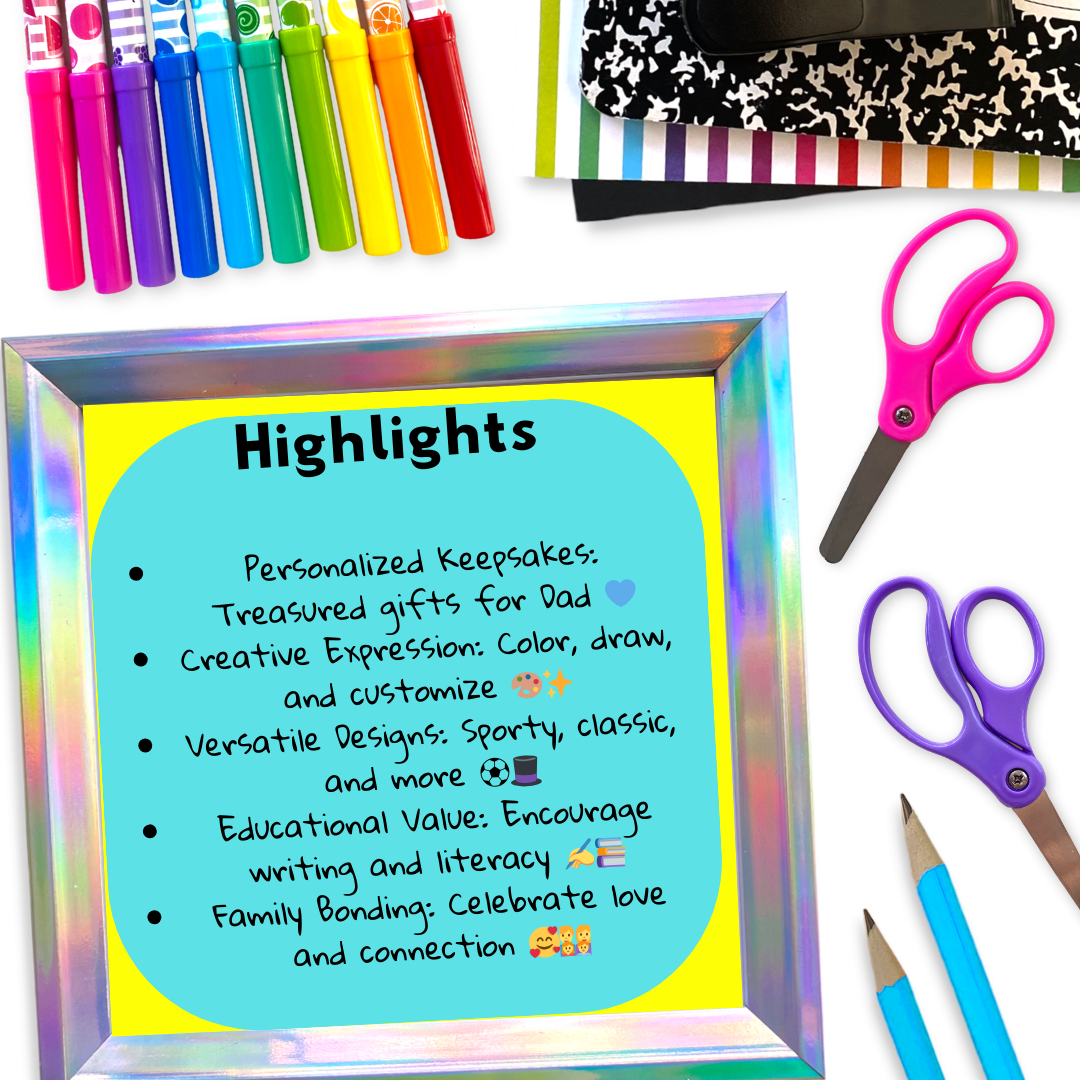 Highlights
• Personalized Keepsakes:
Treasured gifts for Dad 💙
• Creative Expression: Color, draw,
and customize 🎨✨
• Versatile Designs: Sporty, classic,
and more ⚽🎩
• Educational Value: Encourage
writing and literacy ✍️📚
• Family Bonding: Celebrate love
and connection 🥰👨‍👩‍👧‍👦